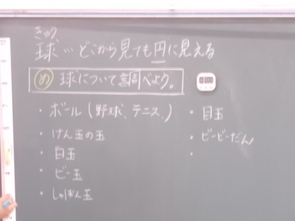 きゅう
球…どこから見ても円に見える
め 球について調べよう。
・ボール(野球、テニス、)
・けん玉の玉
・白玉
・ビー玉
・しゃぼん玉
・目玉
・ビービーだん
・